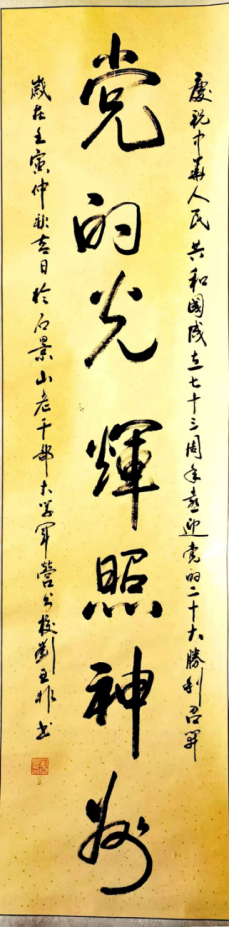 慶祝中華人民共和國成立七十三周年喜迎党的二十大勝利召開
党的光輝照神州
歲在壬寅仲秋吉日於石景山老干部大学軍營分校劉书